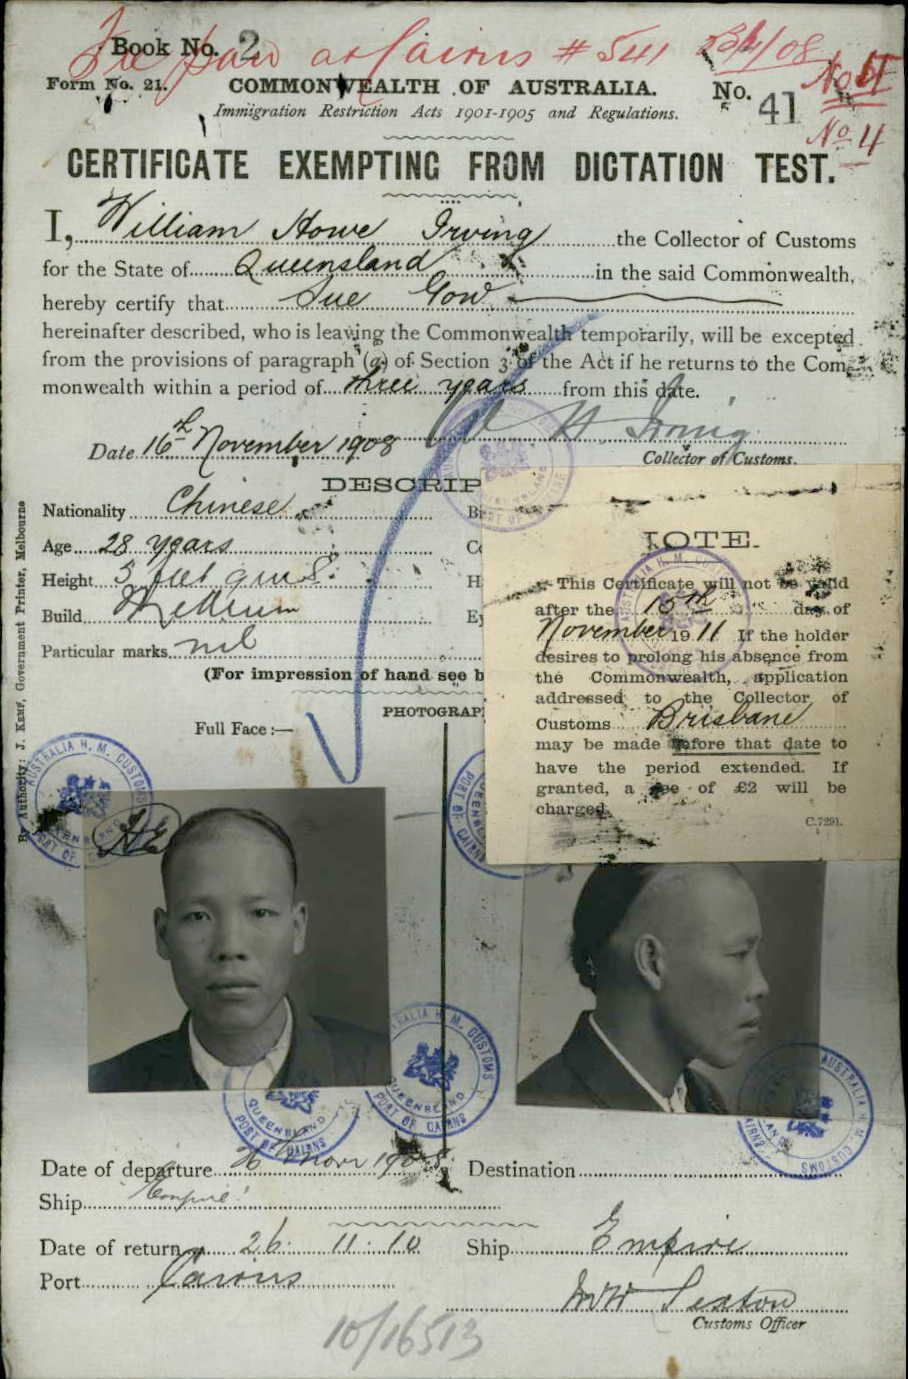 Book No. 2
at Cairns # 541
Form No. 21.
COMMONWEALTH OF AUSTRALIA.
No. 41
Immigration Restriction Acts 1901-1905 and Regulations.
No 4
CERTIFICATE EXEMPTING FROM DICTATION TEST.
I, William Howe Irving the Collector of Customs
for the State of Queensland in the said Commonwealth,
hereby certify that Sue Gow
hereinafter described, who is leaving the Commonwealth temporarily, will be excepted
from the provisions of paragraph (a) of Section 3 of the Act if he returns to the Com-
monwealth within a period of three years from this date.
W H Irving
Date 16th November 1908
Collector of Customs.
DESCRIP
Nationality Chinese
Age 28 years
Height 5 feet 9 ins.
Build Medium
Particular marks nil
(For impression of hand see b
PHOTOGRAP
Full Face:—
NOTE.
This Certificate will not be valid
after the 15th day of
November 1911 If the holder
desires to prolong his absence from
the Commonwealth, application
addressed to the Collector of
Customs Brisbane
may be made before that date to
have the period extended. If
granted, a fee of £2 will be
charged.
C.7291.
By Authority: J. KEMP, Government Printer, Melbourne
AUSTRALIA H. M. CUSTOMS
QUEENSLAND
PORT OF CAIRNS
Date of departure 26 Novr 1908
Destination
Ship Empire
Date of return 26. 11. 10
Ship Empire
Port Cairns
Customs Officer
10/16513